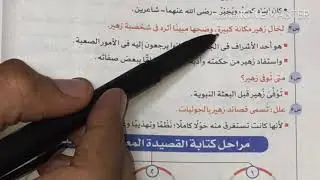 كان ابناه كعب وبجير - رضي الله عنهما - شاعرين.
لخال زهير مكانة كبيرة، وضحها مبينًا أثره في شخصية زهير.
هو أحد الأشراف في الج كانوا يرجعون إليه في الأمور الصعبة.
واستفاد زهير من حكمته وأد ببعض صفاته.
متى تُوفي زهير؟
تُوفي زهير قبل البعثة النبوية.
علل: تُسمى قصائد زهير بالحوليات.
لأنها كانت تستغرق منه حولًا كاملًا؛ نظمًا وتهذيبًا و
مراحل كتابة القصيدة